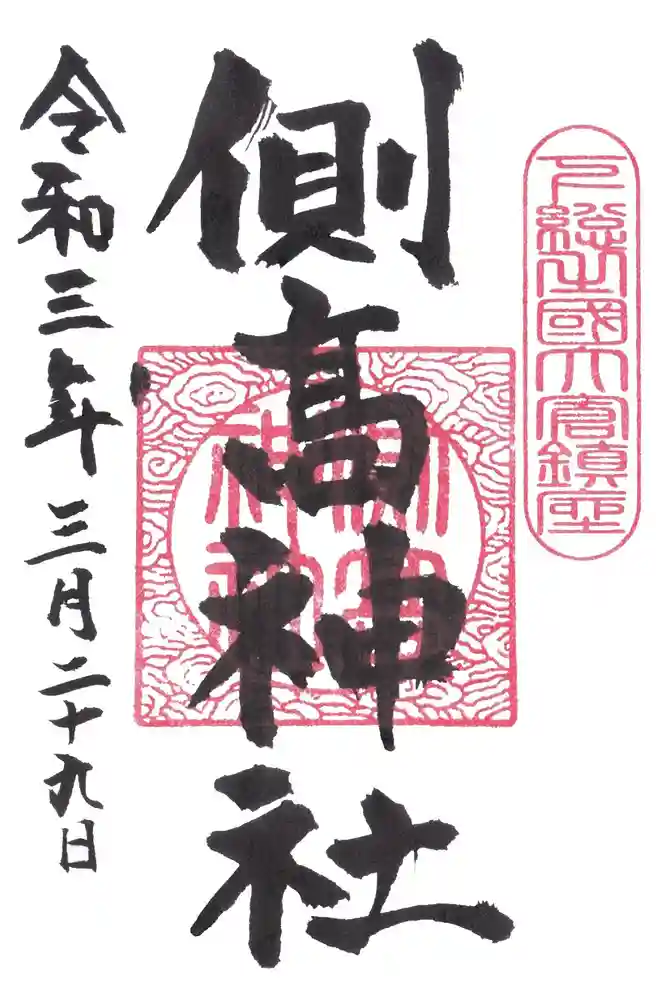 下総國大倉鎮座
側高神社
側高神社
令和三年三月二十九日